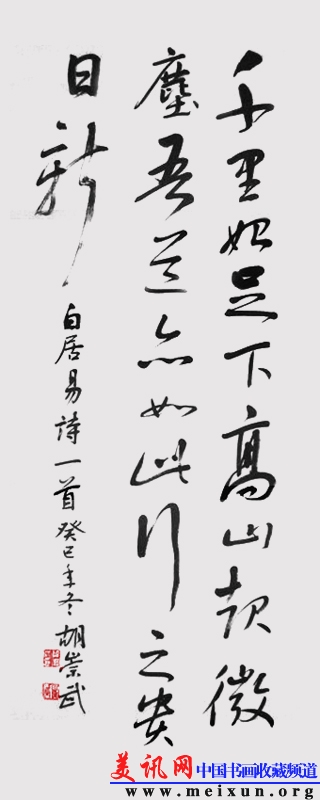 千里始足下高山起微
塵吾道亦如此行之貴
日新
白居易詩一首癸巳年冬胡崇武
美讯网 中国书画收藏频道
www.meixun.org